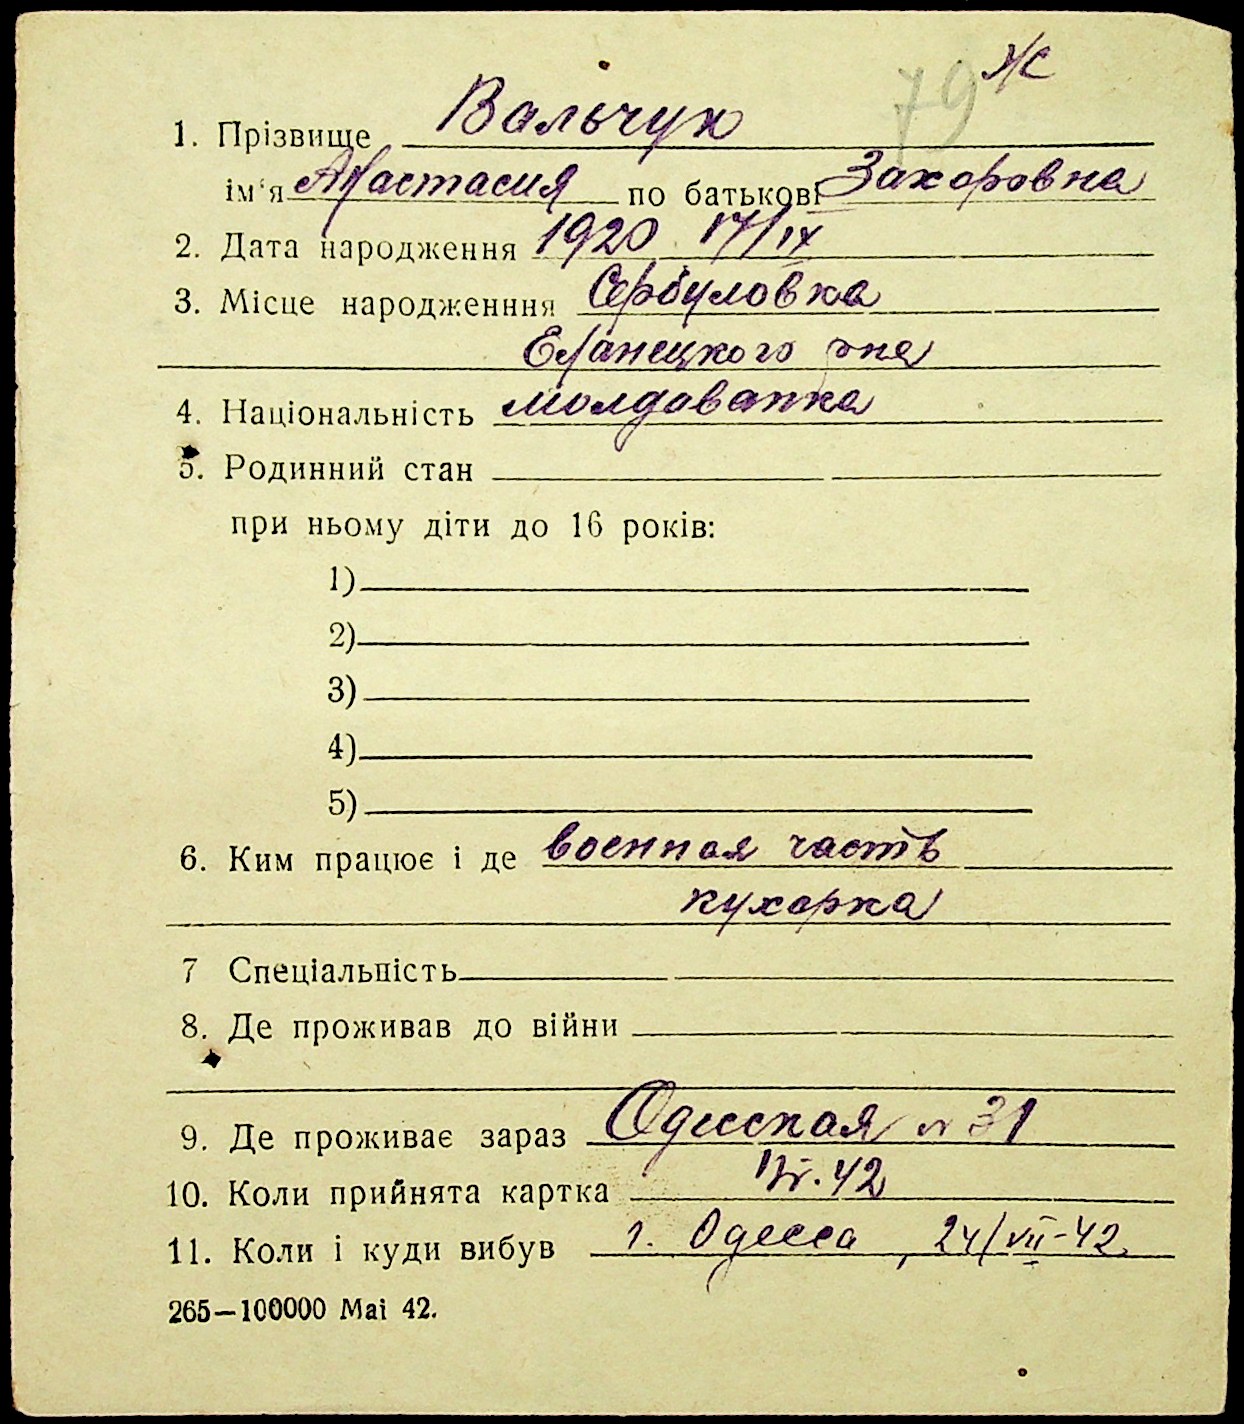 79 Ж
1. Прізвище Вальчук
ім'я Анастасия по батькові Захоровна
2. Дата народження 1920 17/IX
3. Місце народженння Сербуловка
Еланецкого р-на
4. Національність молдаванка
5. Родинний стан
при ньому діти до 16 років:
1)
2)
3)
4)
5)
6. Ким працює і де военная часть
кухорка
7 Спеціальність
8. Де проживав до війни
9. Де проживає зараз Одесская № 31
10. Коли прийнята картка 42
11. Коли і куди вибув г. Одесса, 24/VII-42.
265—100000 Маі 42.